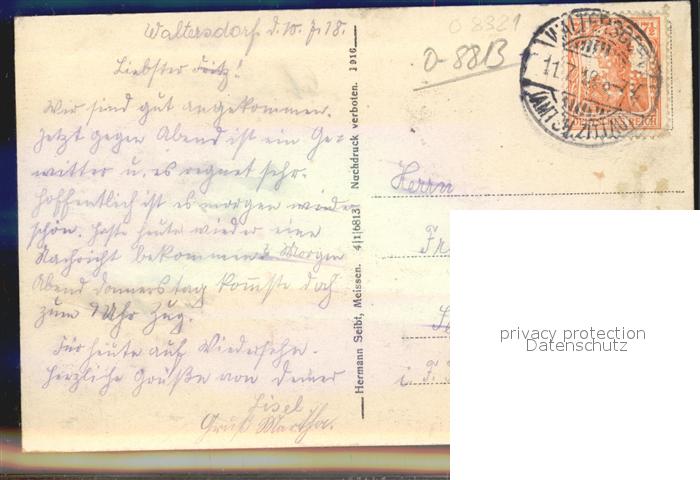 Waltersdorf d. 10. 7. 18.
Liebster Fritz!
Wir sind gut angekommen.
Jetzt gegen Abend ist ein Ge-
witter u. es regnet sehr.
Hoffentlich ist es morgen wieder
schön. Haste heute wieder eine
Nachricht bekommen? Morgen
Abend Donnerstag kommste doch
zum 9 Uhr Zug.
Für heute auf Wiedersehn.
Herzliche Grüße von Deiner
Liesel
Gruß Martha.
Hermann Seibt, Meissen. 4|1|6813 Nachdruck verboten. 1916
O 8321
O-8813
WALTERSDORF
11.7.18
(AMTSH. ZITTAU)
DEUTSCHES REICH
7½
Herrn
Fr
i. F.
privacy protection
Datenschutz